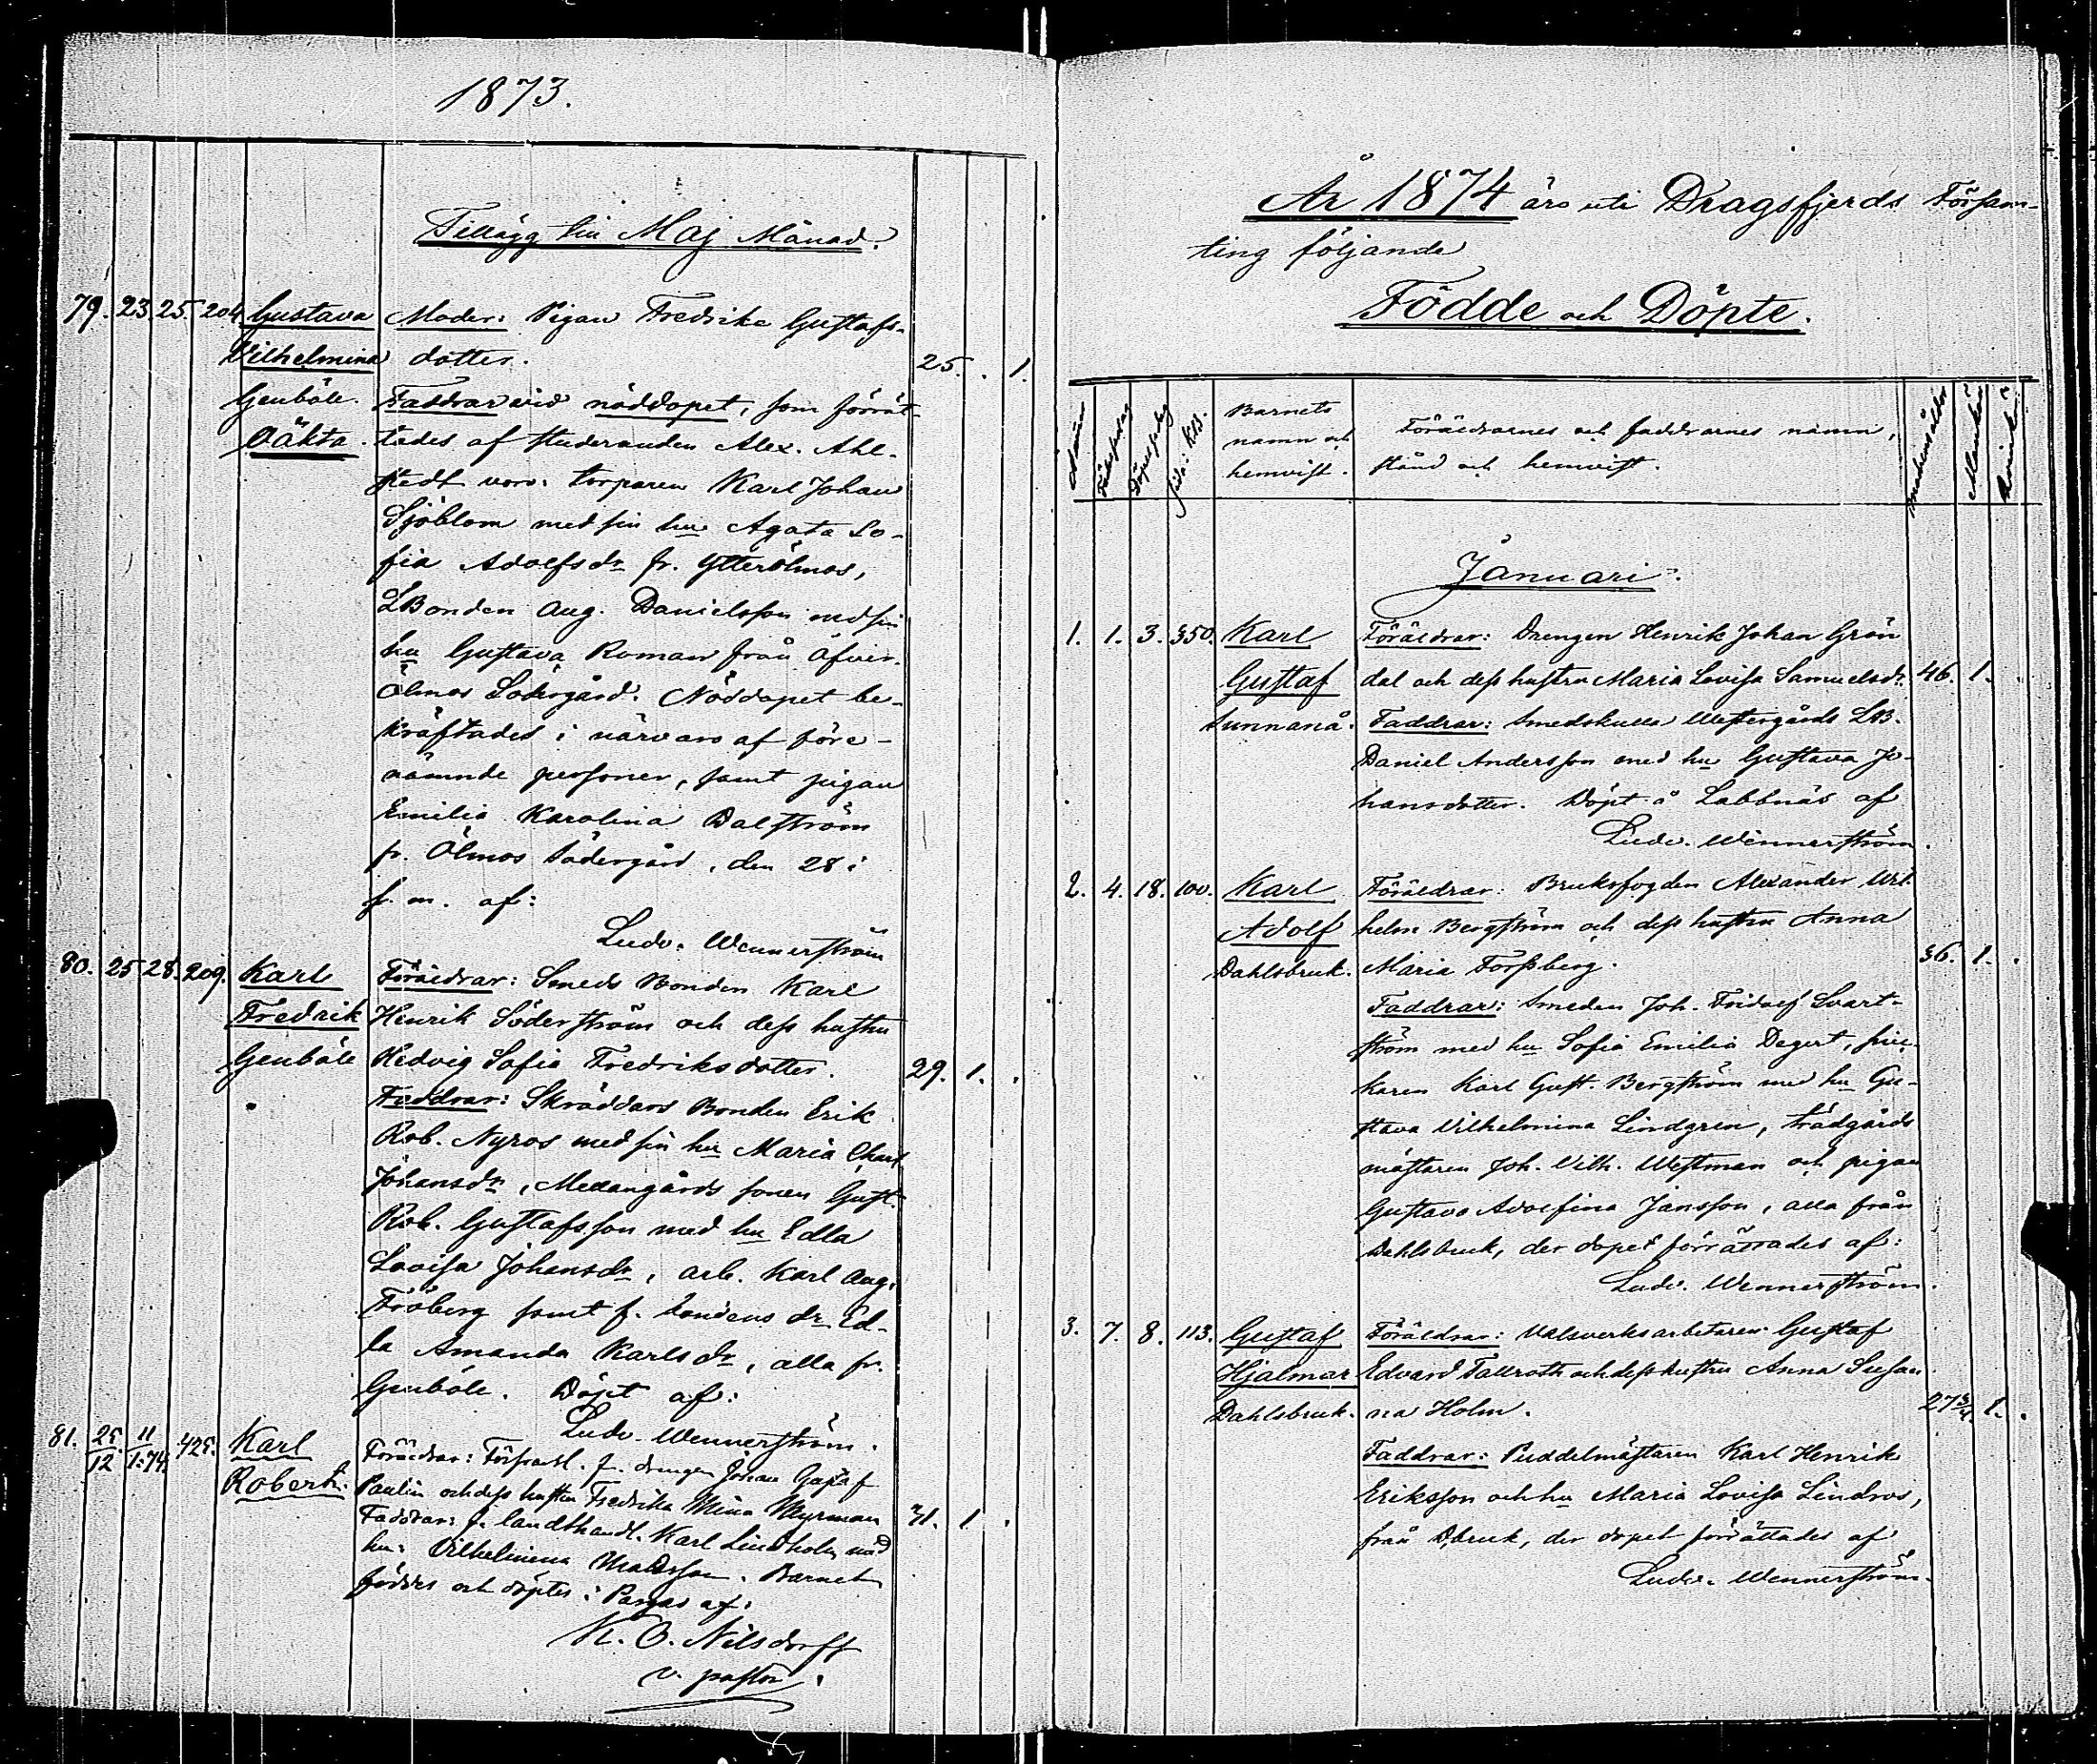 1873.
Tillägg till Maj Månad.
79. 23. 25. 204. Gustava Moder: Pigan Fredrika Gustafs-
Vilhelmina dotter. 25. . 1.
Genböle. Faddrar vid nöddopet, som förrät-
Oäkta. tades af studeranden Alex. Ahl-
stedt voro: torparen Karl Johan
Sjöblom med sin hu Agata So-
fia Adolfsdr fr. Ytterölmos,
LBonden Aug. Danielsson med sin
hu Gustava Roman från Öfver-
Ölmos Södergård. Nöddopet be-
kräftades i närvaro af före-
nämnde personer, samt pigan
Emilia Karolina Dalström
fr. Ölmos Södergård, den 28 i
s. m. af:
Ludv. Wennerström
80. 25 28. 209. Karl Föräldrar: Smeds Bonden Karl
Fredrik Henrik Söderström och dess hustru
Genböle Hedvig Sofia Fredriksdotter. 29. 1. .
Faddrar: Skräddars Bonden Erik
Rob. Nyros med sin hu Maria Charl.
Johansdr, Mellangårds sonen Gust.
Rob. Gustafsson med hu Edla
Lovisa Johansdr, arb. Karl Aug.
Fröberg samt f. bondens dr Ed-
la Amanda Karlsdr, alla fr.
Genböle. Döpt af:
Ludv. Wennerström.
81. 25/12 11/1.74. 425. Karl Föräldrar: f. drengen Johan Gustaf
Robert. Paulin och dess hustru Fredrika Mina Myrman 31. 1 .
Faddrar: f. landthandl. Karl Lindholm med
hu: Vilhelmina Mattsson. Barnet
föddes och döptes i Pargas af:
K. O. Nilsdorff
v. pastor.
År 1874 äro uti Dragsfjerds Försam-
ling följande
Födde och Döpte.
Födelsedag Döpelsedag Sida i KB. Barnets
namn och
hemvist. Föräldrarnes och faddrarnes namn,
stånd och hemvist. Moderns ålder Mankön Qvinkön
Januari.
1. 1. 3. 350. Karl Föräldrar: Drengen Henrik Johan Grön
Gustaf dal och dess hustru Maria Lovisa Samuelsdr. 46. 1. .
Sunnanå. Faddrar: Smedskulla Westergårds LB.
Daniel Andersson med hu Gustava Jo-
hansdotter. Döpt å Labbnäs af
Ludv. Wennerström.
2. 4. 18. 100. Karl Föräldrar: Bruksfogden Alexander Wil-
Adolf helm Bergström och dess hustru Anna
Dahlsbruk. Maria Forssberg. 36. 1. .
Faddrar: Smeden Joh. Fridolf Svart-
ström med hu Sofia Emilia Degert, snic-
karen Karl Gust. Bergström med hu Gu-
stava Vilhelmina Lindgren, trädgårds
mästaren Joh. Vilh. Westman och pigan
Gustava Adolfina Jansson, alla från
Dahlsbruk, der dopet förrättades af:
Ludv. Wennerström.
3. 7. 8. 113. Gustaf Föräldrar: Valsverksarbetaren Gustaf
Hjalmar Edvard Tallroth och dess hustru Anna Susan-
Dahlsbruk. na Holm. 27 3/4. 1. .
Faddrar: Puddelmästaren Karl Henrik
Eriksson och hu Maria Lovisa Lindros,
från D.bruk, der dopet förrättades af
Ludv. Wennerström.